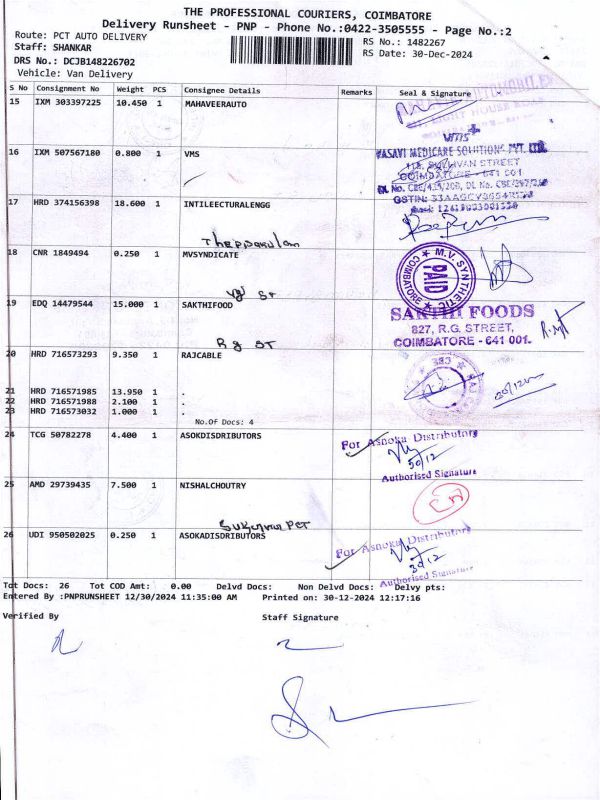 THE PROFESSIONAL COURIERS, COIMBATORE
Delivery Runsheet - PNP - Phone No.:0422-3505555 - Page No.:2
Route: PCT AUTO DELIVERY
RS No.: 1482267
Staff: SHANKAR
RS Date: 30-Dec-2024
DRS No.: DCJB148226702
Vehicle: Van Delivery
S No Consignment No Weight PCS Consignee Details Remarks Seal & Signature
15 IXM 303397225 10.450 1 MAHAVEERAUTO
16 IXM 507567180 0.800 1 VMS
VASAVI MEDICARE SOLUTIONS PVT. LTD.
SULLIVAN STREET
COIMBATORE - 641 001
17 HRD 374156398 18.600 1 INTILEECTURALENGG
18 CNR 1849494 0.250 1 MVSYNDICATE
M.V. SYNTHETIC
PAID
COIMBATORE
19 EDQ 14479544 15.000 1 SAKTHIFOOD
SAKTHI FOODS
827, R.G. STREET,
COIMBATORE - 641 001.
R.g ST
20 HRD 716573293 9.350 1 RAJCABLE
21 HRD 716571985 13.950 1 .
22 HRD 716571988 2.100 1 .
23 HRD 716573032 1.000 1 .
No.Of Docs: 4
24 TCG 50782278 4.400 1 ASOKDISDRIBUTORS
For Asnoka Distributors
30/12
Authorised Signature
25 AMD 29739435 7.500 1 NISHALCHOUTRY
26 UDI 950502025 0.250 1 ASOKADISDRIBUTORS
For Asnoka Distributors
30/12
Authorised Signature
Tot Docs: 26 Tot COD Amt: 0.00 Delvd Docs: Non Delvd Docs: Delvy pts:
Entered By :PNPRUNSHEET 12/30/2024 11:35:00 AM Printed on: 30-12-2024 12:17:16
Verified By Staff Signature